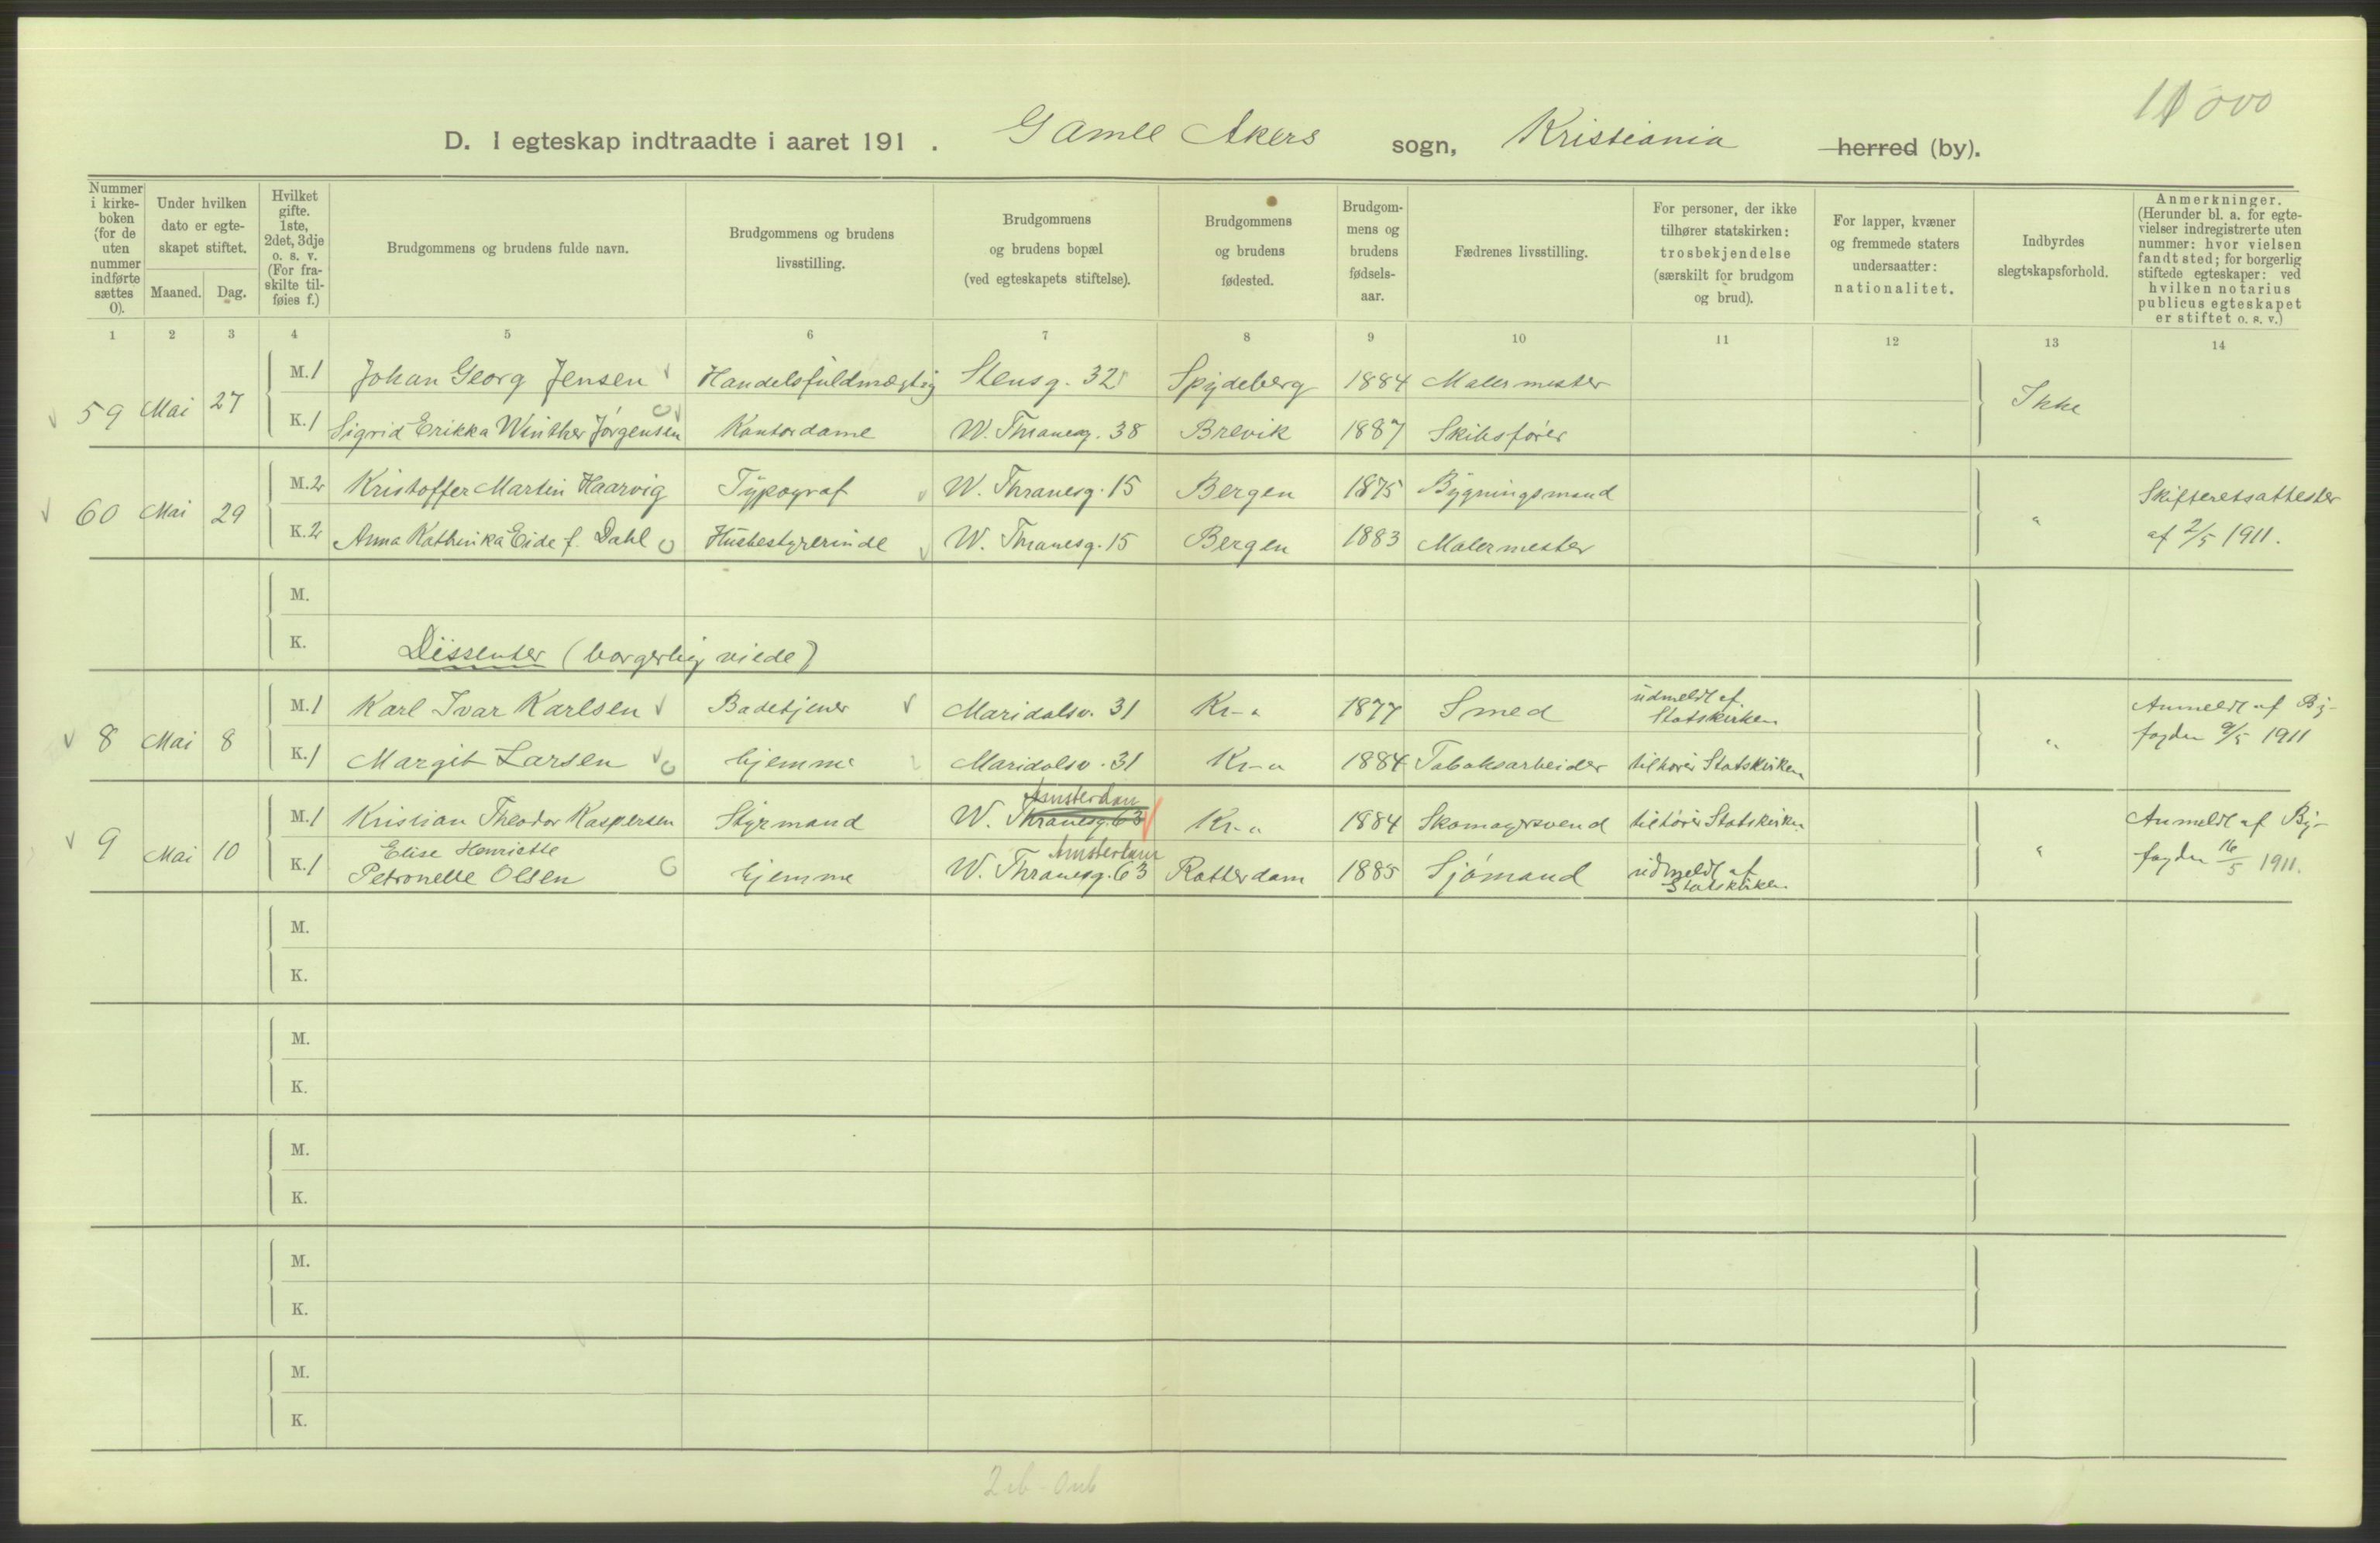 11 000
D. I egteskap indtraadte i aaret 191 . Gamle Akers sogn, Kristiania herred (by).
Nummer i kirkeboken (for de uten nummer indførte sættes 0).
Under hvilken dato er egteskapet stiftet.
Maaned. Dag.
Hvilket gifte. 1ste, 2det, 3dje o. s. v. (For fraskilte tilføies f.)
Brudgommens og brudens fulde navn.
Brudgommens og brudens livsstilling.
Brudgommens og brudens bopæl (ved egteskapets stiftelse).
Brudgommens og brudens fødested.
Brudgommens og brudens fødselsaar.
Fædrenes livsstilling.
For personer, der ikke tilhører statskirken: trosbekjendelse (særskilt for brudgom og brud).
For lapper, kvæner og fremmede staters undersaatter: nationalitet.
Indbyrdes slegtskapsforhold.
Anmerkninger. (Herunder bl. a. for egtevielser indregistrerte uten nummer: hvor vielsen fandt sted; for borgerlig stiftede egteskaper: ved hvilken notarius publicus egteskapet er stiftet o. s. v.)
1 2 3 4 5 6 7 8 9 10 11 12 13 14
59 Mai 27 M. 1 Johan Georg Jensen Handelsfuldmægtig Stensg. 32 Spydeberg 1884 Malermester Ikke
K. 1 Sigrid Erikka Winther Jørgensen Kontordame W. Thranesg. 38 Brevik 1887 Skibsfører
60 Mai 29 M. 2 Kristoffer Martin Haarvig Typograf W. Thranesg. 15 Bergen 1875 Bygningsmand " Skifteretsattester
K. 2 Anna Kathinka Eide f. Dahl Husbestyrerinde W. Thranesg. 15 Bergen 1883 Malermester af 2/5 1911.
M.
K. Dissenter (borgerlig viede)
8 Mai 8 M. 1 Karl Ivar Karlsen Badetjener Maridalsv. 31 Kr-a 1877 Smed udmeldt af Statskirken " Anmeldt af By-
K. 1 Margit Larsen hjemme Maridalsv. 31 Kr-a 1884 Tobaksarbeider tilhører Statskirken fogden 9/5 1911
9 Mai 10 M. 1 Kristian Theodor Kaspersen Styrmand W. Thranesg. 63 Amsterdam Kr-a 1884 Skomagersvend tilhører Statskirken " Anmeldt af By-
K. 1 Elise Henriette Petronelle Olsen hjemme W. Thranesg. 63 Amsterdam Rotterdam 1885 Sjómand udmeldt af Statskirken fogden 16/5 1911.
M.
K.
M.
K.
M.
K.
M.
K.
M.
K.